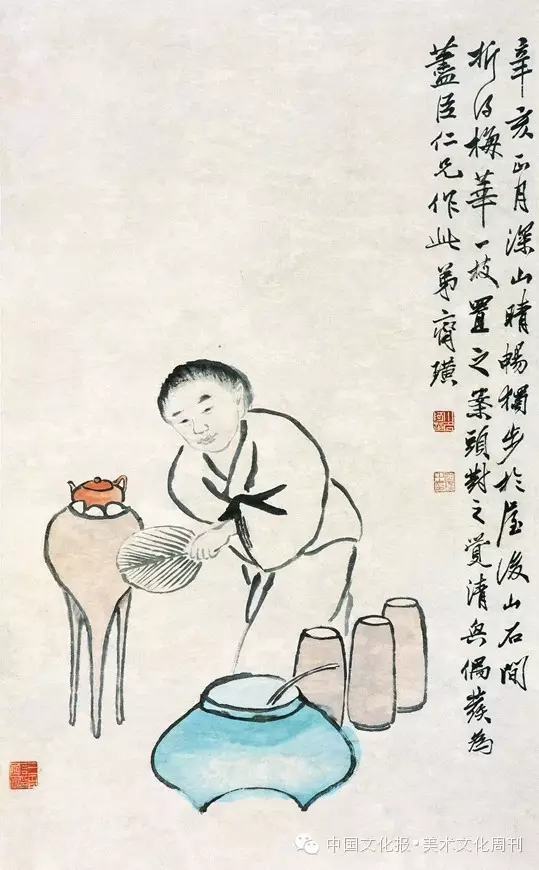 辛亥正月深山晴暢獨步於屋後山石間
折得梅華一枝置之案頭對之覺清興偶發為
藎臣仁兄作此弟齊璜
中国文化报·美术文化周刊